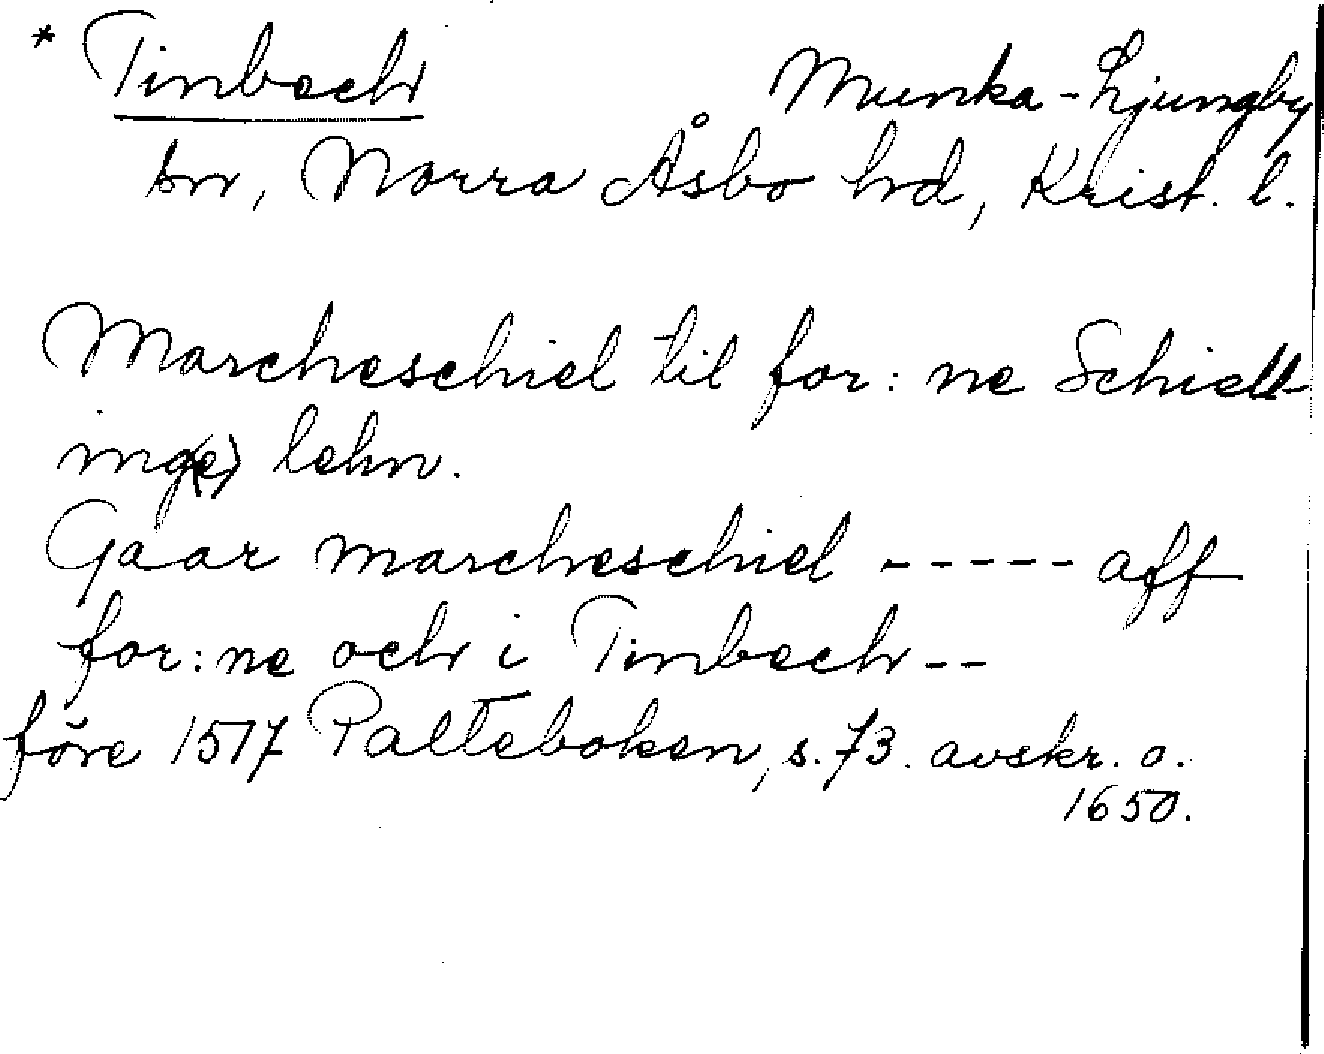 * Tinbech
Munka-Ljungby
sn, Norra Åsbo hd, Krist. l.
Marcheschiel til for: ne Schiell-
ing(e) lehn.
Gaar marcheschiel ----- aff
for:ne och i Tinbech--
före 1517 Palteboken, s. 73. avskr. o.
1650.